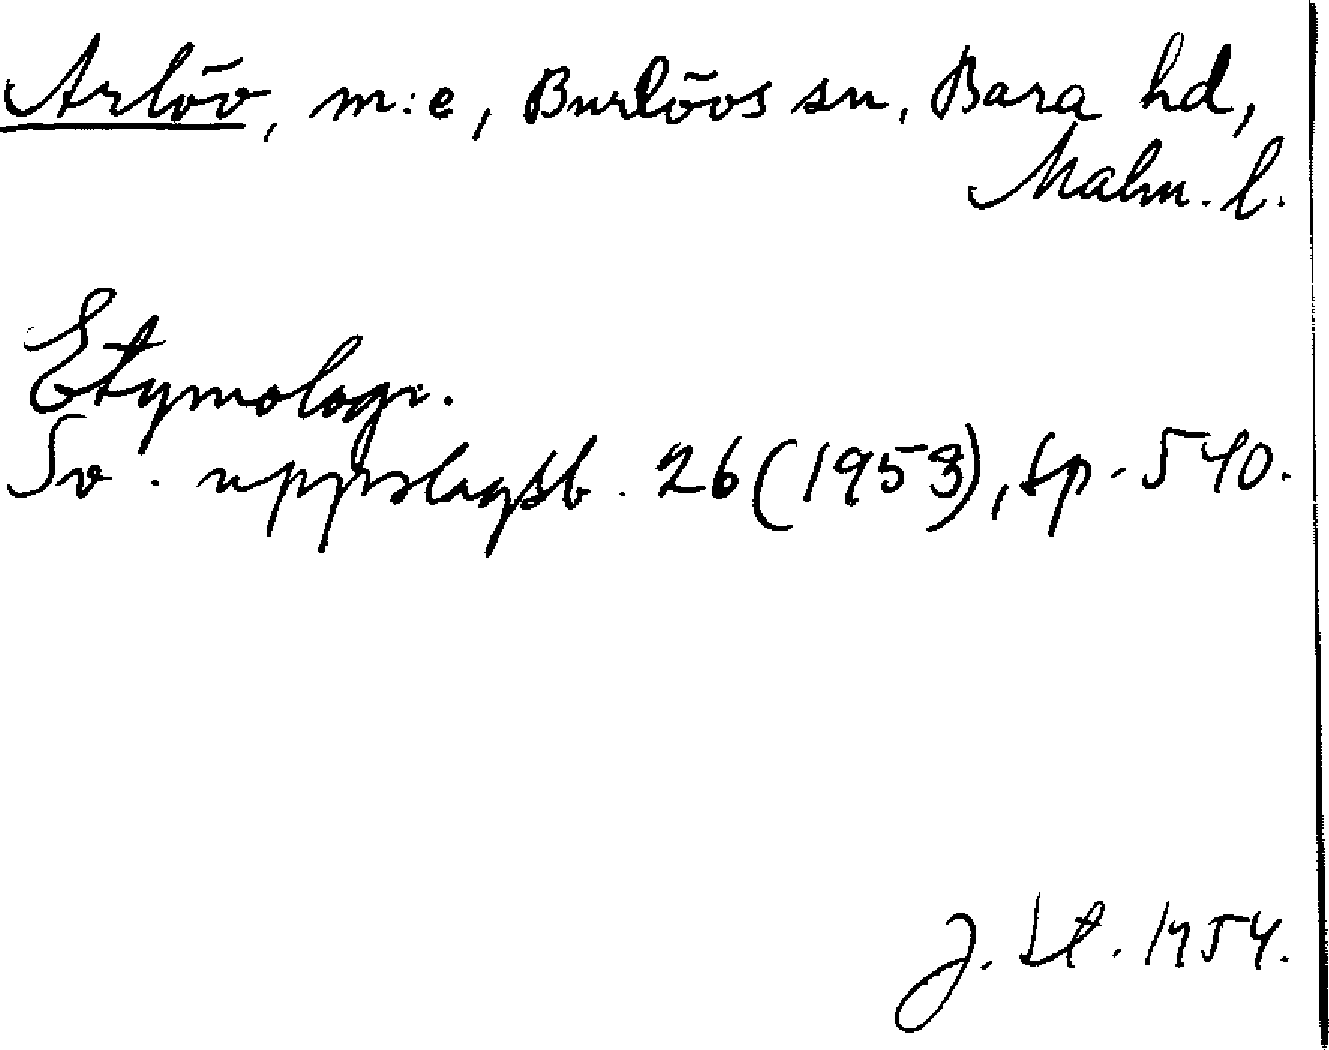 Arlöv, m:e, Burlövs sn, Bara hd,
Malm. l.
Etymologi.
Sv. uppslagsb. 26 (1953), sp. 540.
J. St. 1954.